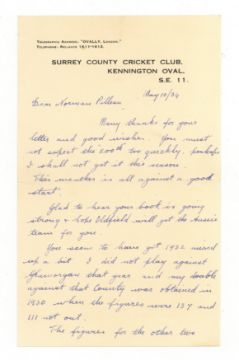 TELEGRAPHIC ADDRESS, "OVALLY, LONDON."
TELEPHONE: RELIANCE 1511-1512.
SURREY COUNTY CRICKET CLUB,
KENNINGTON OVAL,
S.E. 11.
May 10/34
Dear Norman Pilleau
Many thanks for your
letter and good wishes. You must
not expect the 200th too quickly, perhaps
I shall not get it this season.
This weather is all against a good
start.
Glad to hear your book is going
strong & hope Oldfield will get the Aussie
team for you.
You seem to have got 1932 mixed
up a bit I did not play against
Glamorgan that year and my double
against that County was obtained in
1930 when the figures were 137 and
111 not out.
The figures for the other two